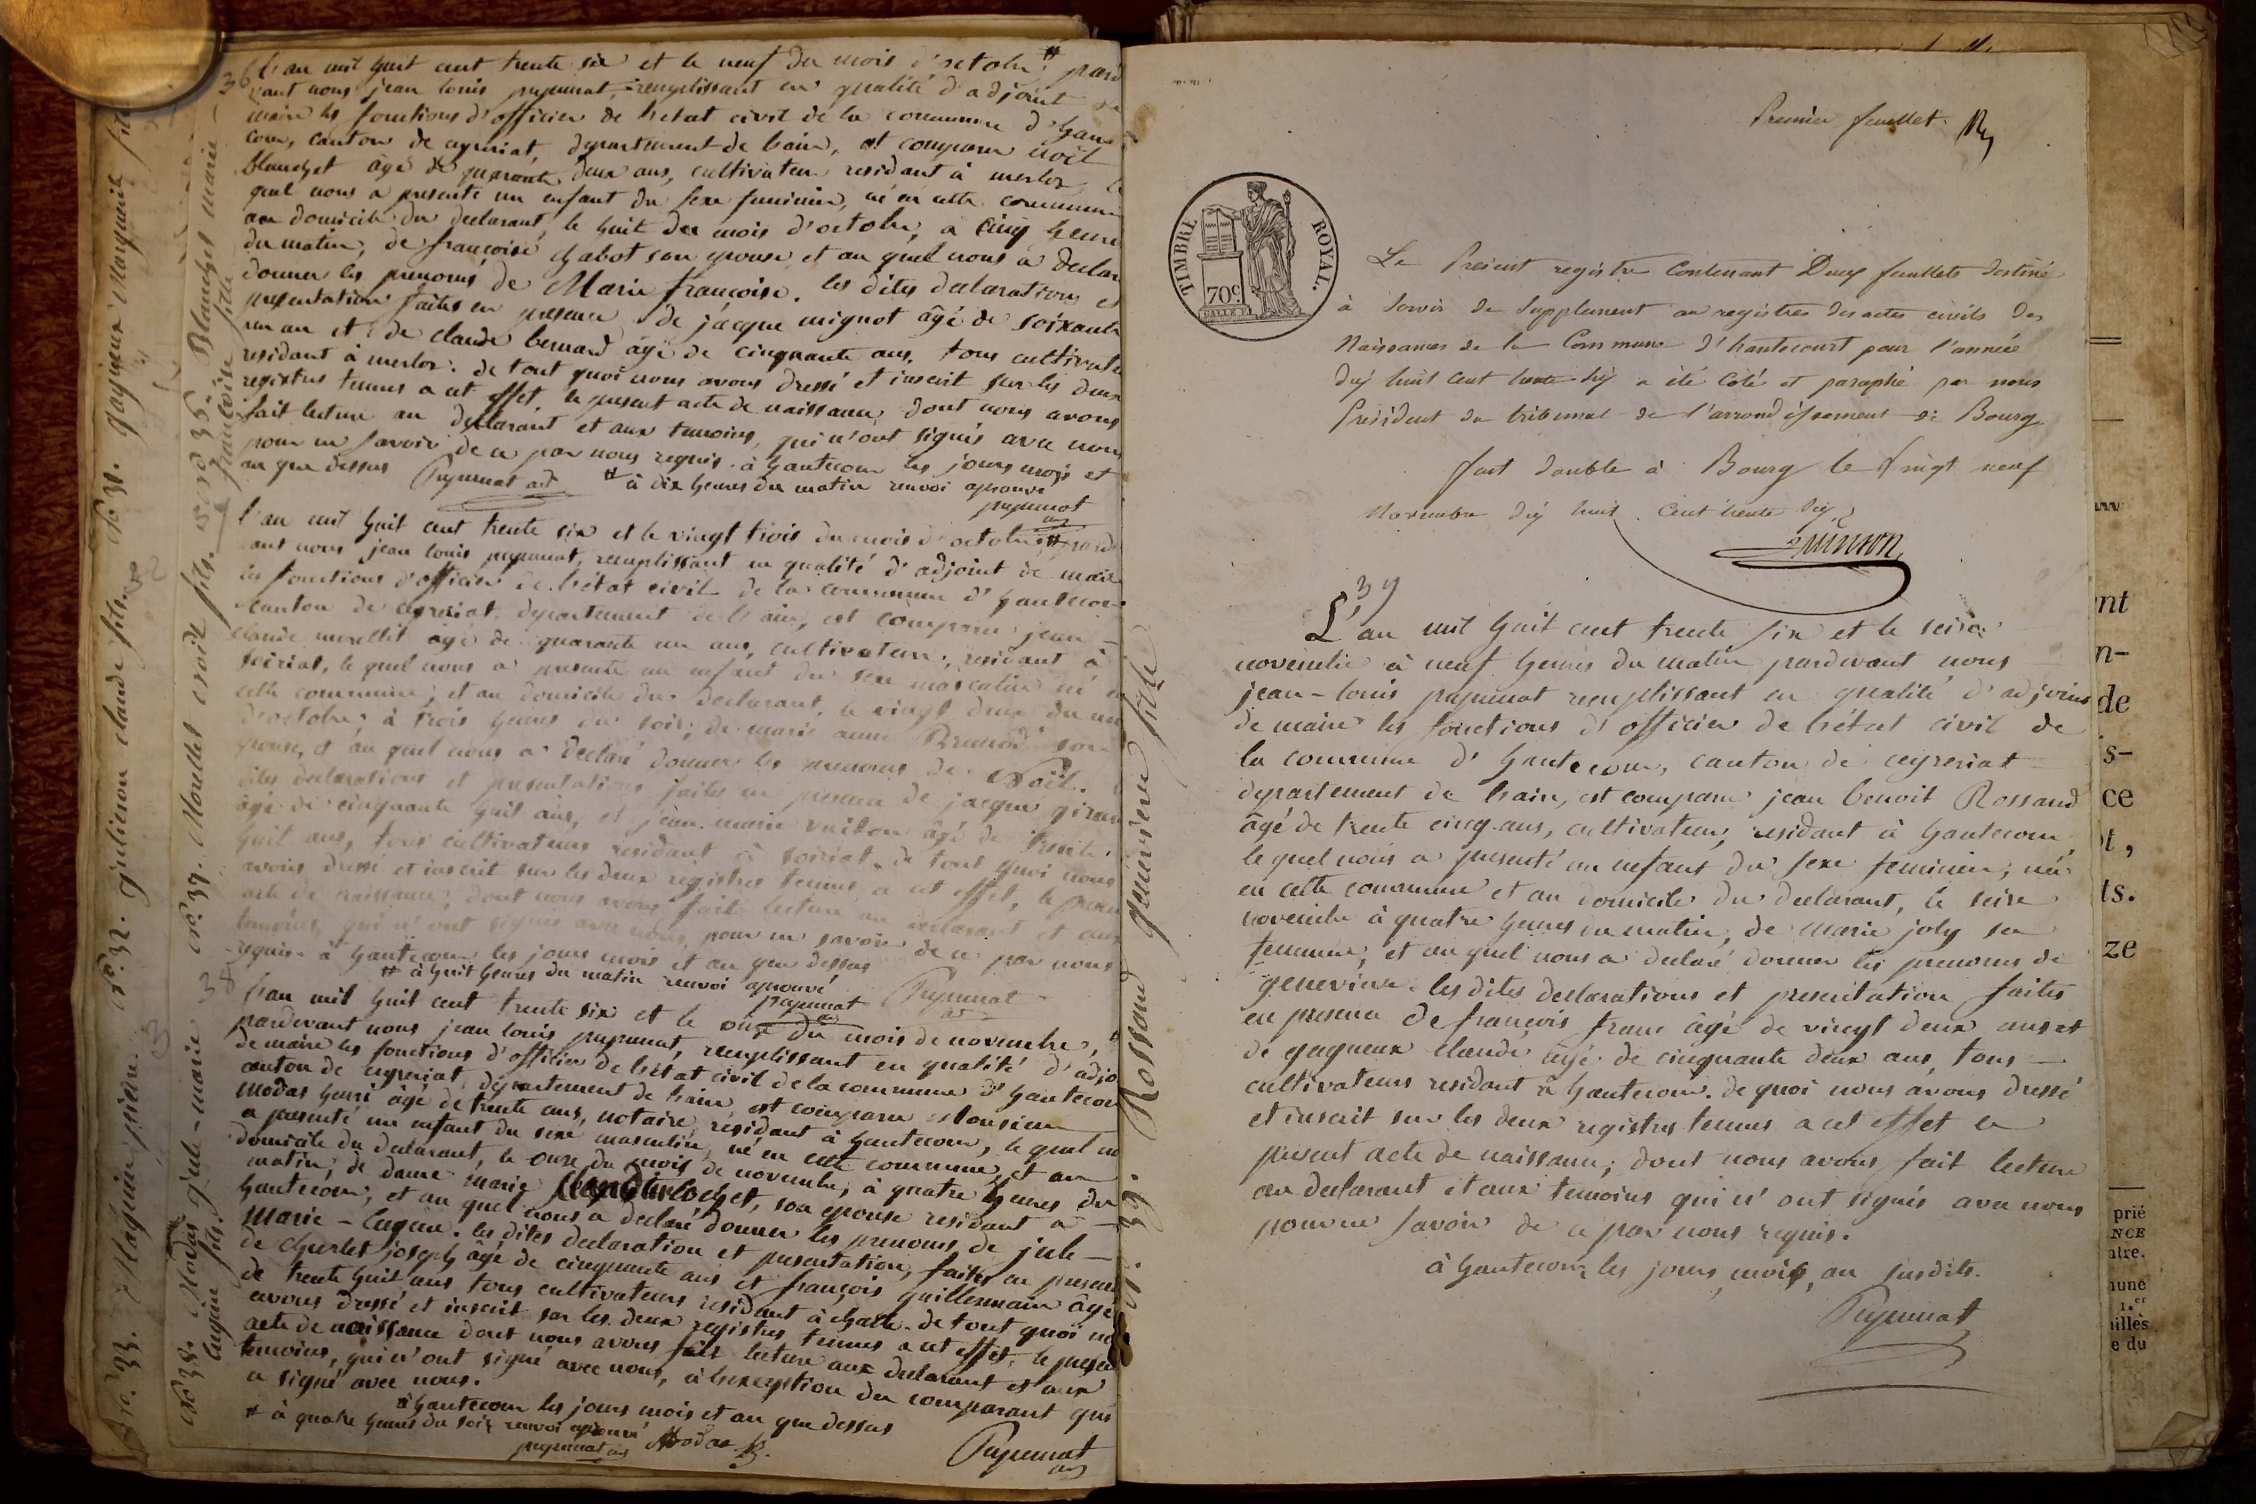 36
l'an mil huit cent trente six et le neuf du mois d'octobre # pard
vant nous jean louis pupunat, remplissant en qualité d'adjoint de
maire les fonctions d'officier de l'etat civil de la commune d'haute
cour, canton de ceyzeriat, departement de l'ain, est comparu noël
blanchet âgé de quarante deux ans, cultivateur residant à merloz, le
quel nous a presenté un enfant du sexe feminin, né en cette commune
au domicile du declarant, le huit du mois d'octobre, à cinq heures
du matin, de françoise chabot son epouse, et au quel nous a declaré
donner les prenoms de Marie françoise. les dites declarations et
presentation faites en presence de jacque mignot âgé de soixante
un an et de claude bernard âgé de cinquante ans, tous cultivate
residant à merloz. de tout quoi nous avons dressé et inscrit sur les deux
registres tenus a cet effet le present acte de naissance dont nous avons
fait lecture au declarant et aux temoins, qui n'ont signés avec nous
pour ne savoir de ce par nous requis. à hautecour les jours mois et
an que dessus Pupunat adt # à dix heures du matin renvoi aprouvé
pupunat
l'an mil huit cent trente six et le vingt trois du mois d'octobre # pard
vant nous jean louis pupunat, remplissant en qualité d'adjoint de maire
les fonctions d'officier de l'état civil de la commune d'hautecour
canton de ceyzeriat departement de l'ain, est comparu jean
claude morellet agé de quarante un ans, cultivateur, residant à
soiriat, le quel nous a presenté un enfant du sexe masculin né en
cette commune, et au domicile du declarant, le vingt deux du mois
d'octobre, à trois heures du soir, de marie anne Brunod son
epouse, et au quel nous a declaré donner les prenoms de Noël. les
dites declarations et presentations faites en presence de jacque
âgé de cinquante huit ans, et jean marie âgé de trente
huit ans, tous cultivateurs residant à soiriat. de tout quoi nous
avons dressé et inscrit sur les deux registres tenus à cet effet, le present
acte de naissance, dont nous avons fait lecture au declarant et aux
temoins, qui n'ont signés avec nous, pour ne savoir de ce par nous
requis. à hautecour les jours mois et an que dessus
# à huit heures du matin renvoi aprouvé Pupunat
pupunat
38
l'an mil huit cent trente six et le onze du mois de novembre, #
pardevant nous jean louis pupunat, remplissant en qualité d'adjo
de maire les fonctions d'officier de l'etat civil de la commune d'hautecour
canton de ceyzeriat, departement de l'ain, est comparu Monsieur
modas henri âgé de trente ans, notaire, residant à hautecour, le quel no
a presenté un enfant du sexe masculin, né en cette commune, et au
domicile du declarant, le onze du mois de novembre, à quatre heures du
matin, de dame marie son epouse residant a
hautecour, et au quel nous a declaré donner les prenoms de jule
Marie-Eugène. les dites declaration et presentation, faites en presence
de charlet joseph âgé de cinquante ans et françois guillermain âgé
de trente huit ans tous cultivateurs residant à challe. de tout quoi no
avons dressé et inscrit sur les deux registres tenus a cet effet, le presen
acte de naissance dont nous avons fait lecture aux declarant et aux
temoins, qui n'ont signé avec nous, à l'exception du comparant qui
a signé avec nous.
à hautecour les jours mois et an que dessus
# à quatre heures du soir renvoi aprouvé
pupunat Modas Pupunat
No. 33. Maguin pierre
No. 32. jullieron claude fils.
No. 31. gagneux Marguerite
No. 35. Blanchet marie
françoise fille
No. 37. Morellet Noël fils.
No. 38. Modas jule-marie
Eugène fils.
No. 39. Rossand genevieve fille
Premier feuillet.
TIMBRE ROYAL.
70c
Le Présent registre contenant Deux feuillets destiné
à servir de supplement au registre des actes civils des
Naissances de la Commune d'hautecourt pour l'année
dix huit cent trente six a été coté et paraphé par nous
Président du tribunal de l'arrondissement de Bourg
fait double à Bourg le Vingt neuf
Novembre dix huit cent trente six
39
L'an mil huit cent trente six et le seize
novembre à neuf heures du matin pardevant nous
jean-louis pupunat remplissant en qualité d'adjoint
de maire les fonctions d'officier de l'état civil de
la commune d'hautecour, canton de ceyzeriat
departement de l'ain, est comparu jean benoit Rossand
âgé de trente cinq ans, cultivateur, residant à hautecour,
le quel nous a presenté un enfant du sexe feminin, né
en cette commune et au domicile du declarant, le seize
novembre à quatre heures du matin, de marie joly sa
femme, et au quel nous a declaré donner les prenoms de
genevieve. les dites declarations et presentation faites
en presence de françois franc âgé de vingt deux ans et
de gagneux claude âgé de cinquante deux ans, tous
cultivateurs residant à hautecour. de quoi nous avons dressé
et inscrit sur les deux registres tenus a cet effet le
present acte de naissance; dont nous avons fait lecture
au declarant et aux temoins qui n'ont signés avec nous
pour ne savoir de ce par nous requis.
à hautecour les jours, mois, an susdits.
Pupunat